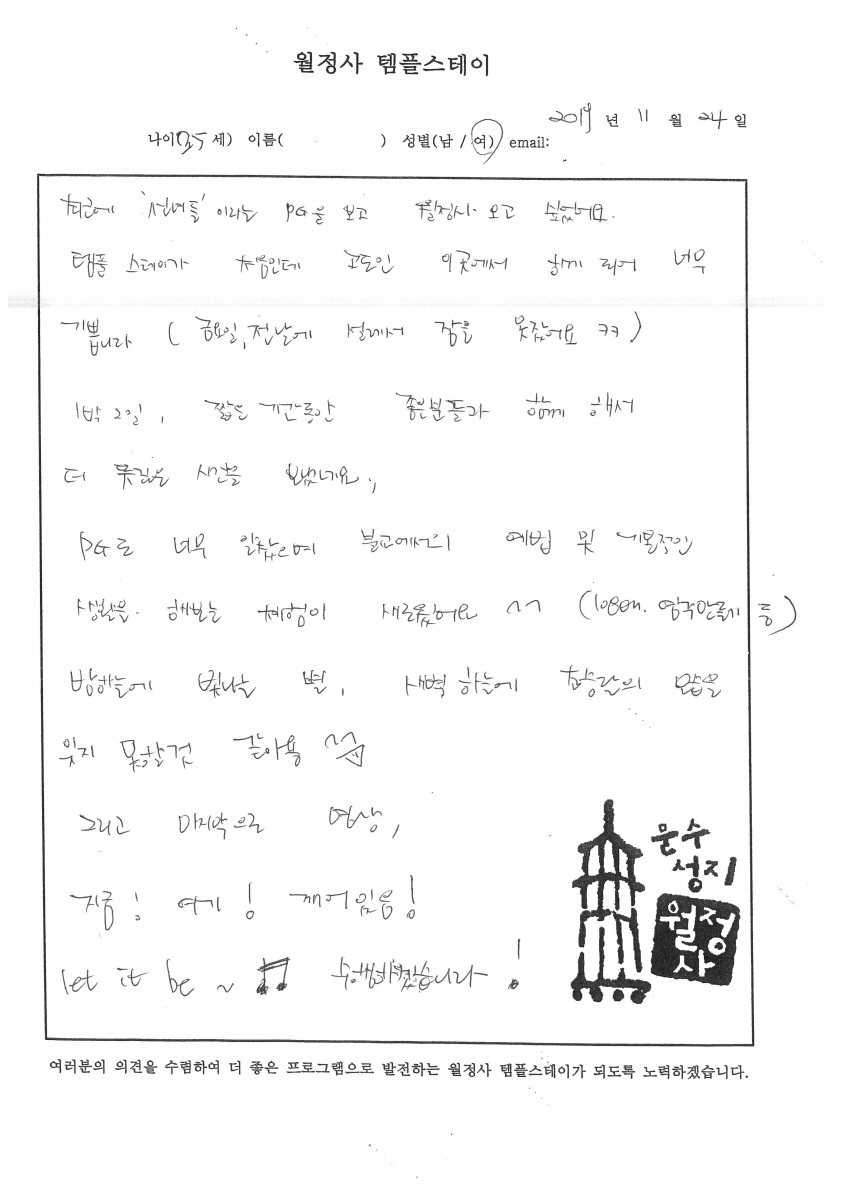 월정사 템플스테이
2019 년 11 월 24 일
나이(35 세) 이름( ) 성별(남 / 여) email:
최근에 '선녀들' 이라는 PG을 보고 월정사 오고 싶었어요.
템플 스테이가 처음인데 고도인 이곳에서 하게 되어 너무
기쁩니다 ( 금요일, 전날에 설레서 잠을 못잤어요 ㅋㅋ )
1박 2일, 짧은 기간동안 좋은분들과 함께 해서
더 뜻깊은 시간을 보냈네요.,
PG로 너무 알찼으며 불교에서의 예법 및 기본적인
생활을 해보는 체험이 새로웠어요 ^^ (108배. 염주만들기 등)
밤하늘에 빛나는 별, 새벽 하늘에 초승달의 모습을
잊지 못할것 같아용 ^^
그리고 마지막으로 명상,
지금! 여기! 깨어있음!
let it be ~ ♫ 수행하겠습니다!
문수
성지
월정
사
여러분의 의견을 수렴하여 더 좋은 프로그램으로 발전하는 월정사 템플스테이가 되도록 노력하겠습니다.